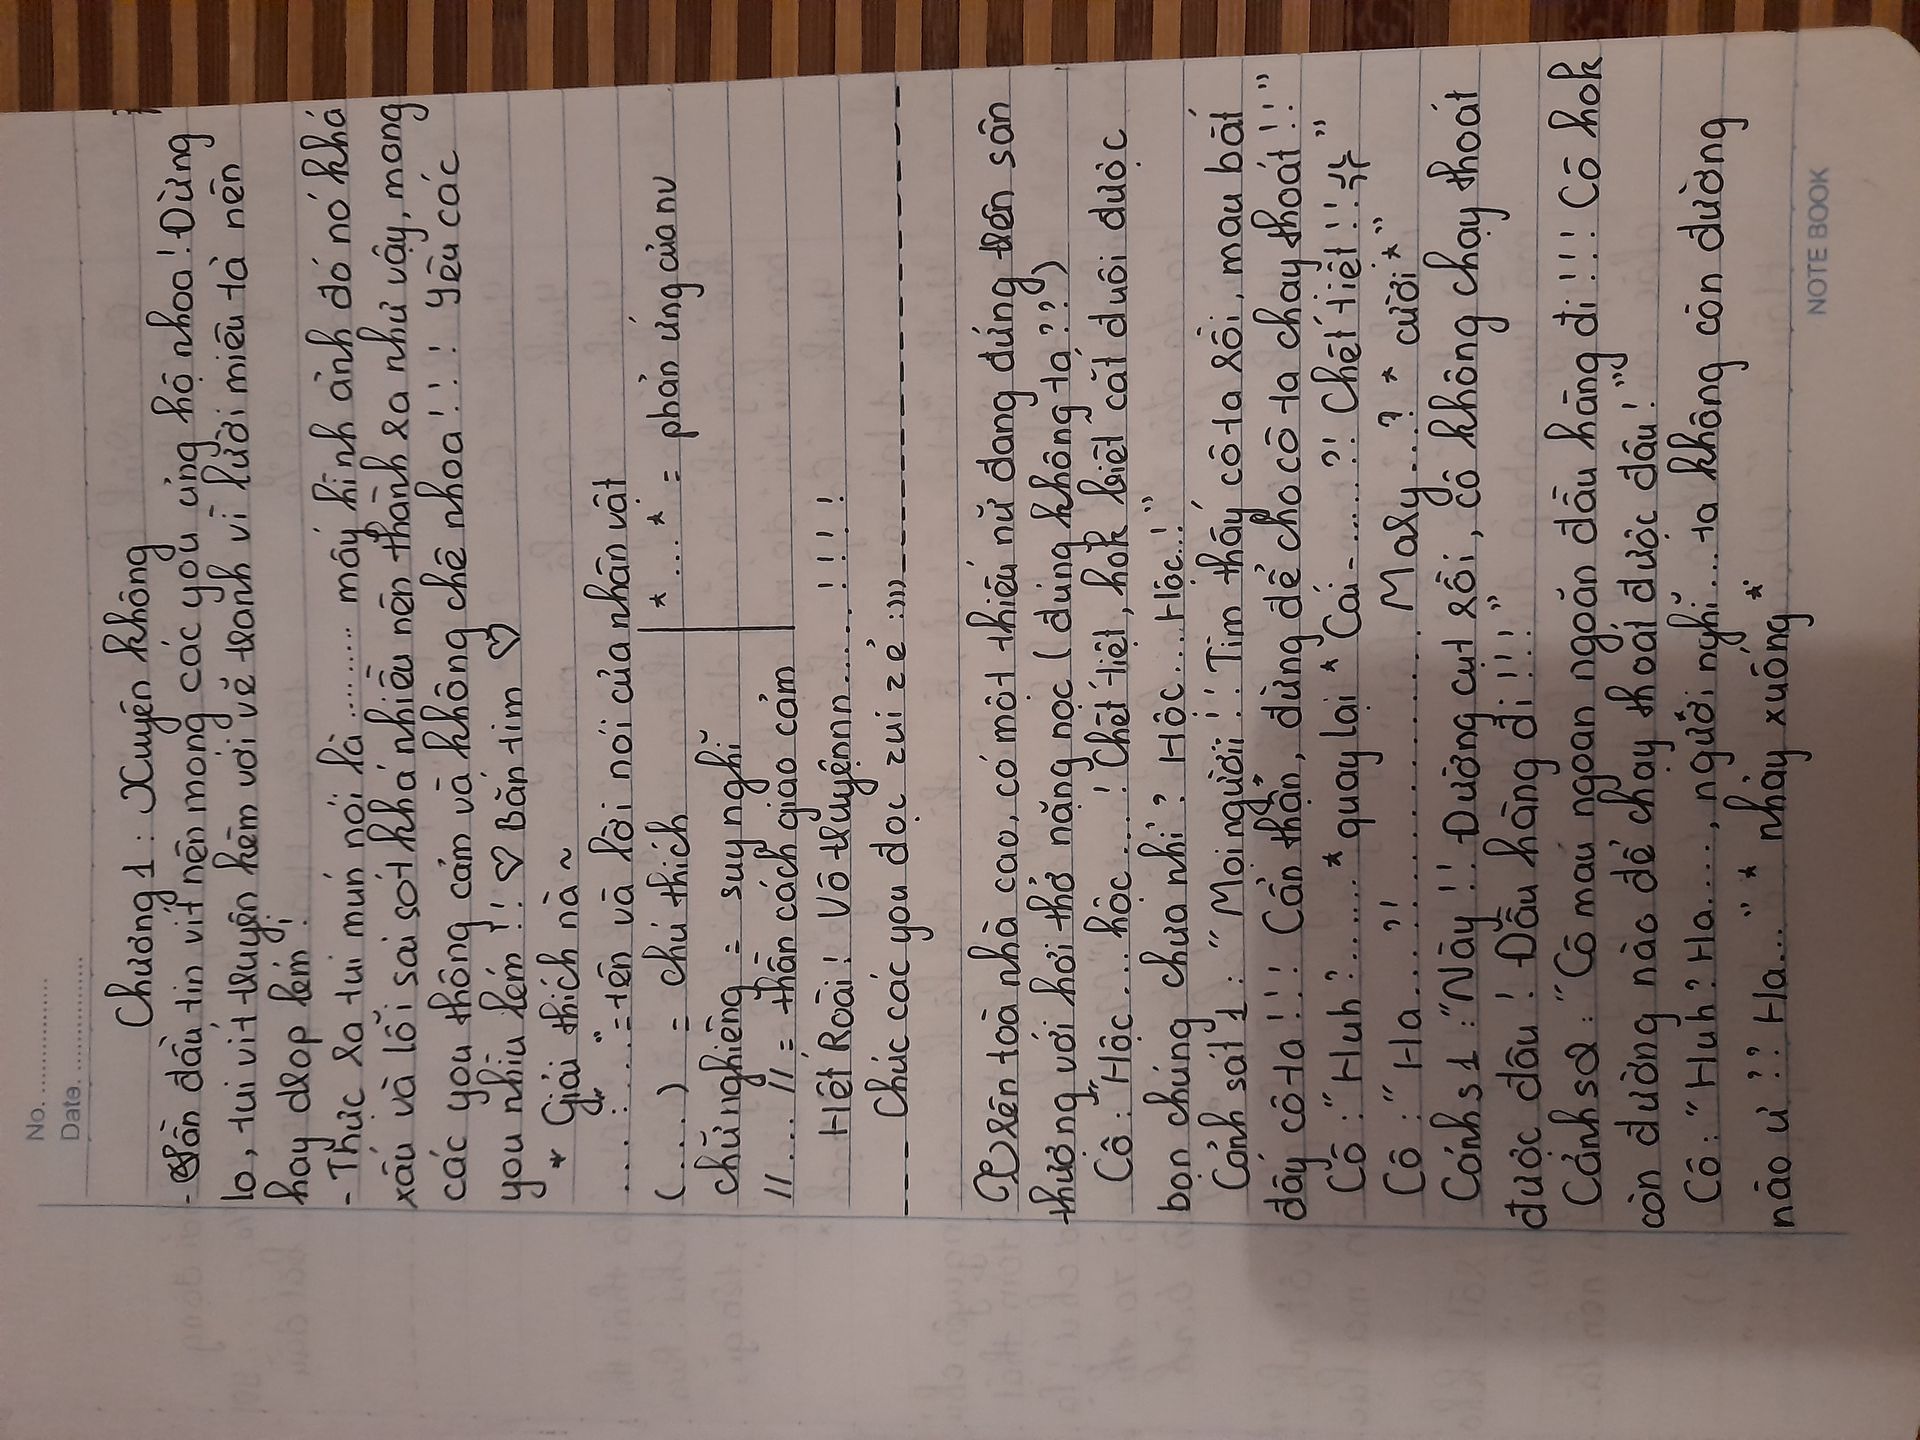 No..................
Date...................
Chương 1: Xuyên không
- Lần đầu tin vit nên mong các you ủng hộ nhoa! Đừng
lo, tui vit truyện kèm với vẽ tranh vì lười miêu tả nên
hay drop lém!
- Thực ra tui mún nói là .......... mấy hình ảnh đó nó khá
xấu và lỗi sai sót khá nhiều nên thành ra như vậy, mong
các you thông cảm và không chê nhoa!!! Yêu các
you nhìu lém!! ♡ Bắn tim ♡
* Giải thích nà ~
.....: "...." = tên và lời nói của nhân vật
(....) = chú thích | *....* = phản ứng của nv
chữ nghiêng = suy nghĩ
//....// = thần cách giao cảm
Hết Roài! Vô truyệnnn......!!!!
---- Chúc các you đọc zui zẻ :)))) ----
Trên toà nhà cao, có một thiếu nữ đang đứng trên sân
thượng với hơi thở nặng nọc (đúng không ta??)
Cô: "Hộc.... hộc.....! Chết tiệt, hok biết cắt đuôi được
bọn chúng chưa nhỉ? Hộc.... Hộc...!"
Cảnh sát 1: "Mọi ngườii!! Tìm thấy cô ta rồi, mau bắt
đấy cô ta!!! Cẩn thận, đừng để cho cô ta chạy thoát!!"
Cô: "Huh?...... *quay lại* Cái-......?! Chết tiệt!!"
Cô: "Ha.....?!.................... Mary...? *cười*"
Cảnh s1: "Này!! Đường cụt rồi, cô không chạy thoát
được đâu! Đầu hàng đi!!!"
Cảnh s2: "Cô mau ngoan ngoãn đầu hàng đi!!! Cô hok
còn đường nào để chạy thoát được đâu!"
Cô: "Huh? Ha....., người nghĩ.... ta không còn đường
nào ư?? Ha..." *nhảy xuống*
NOTE BOOK